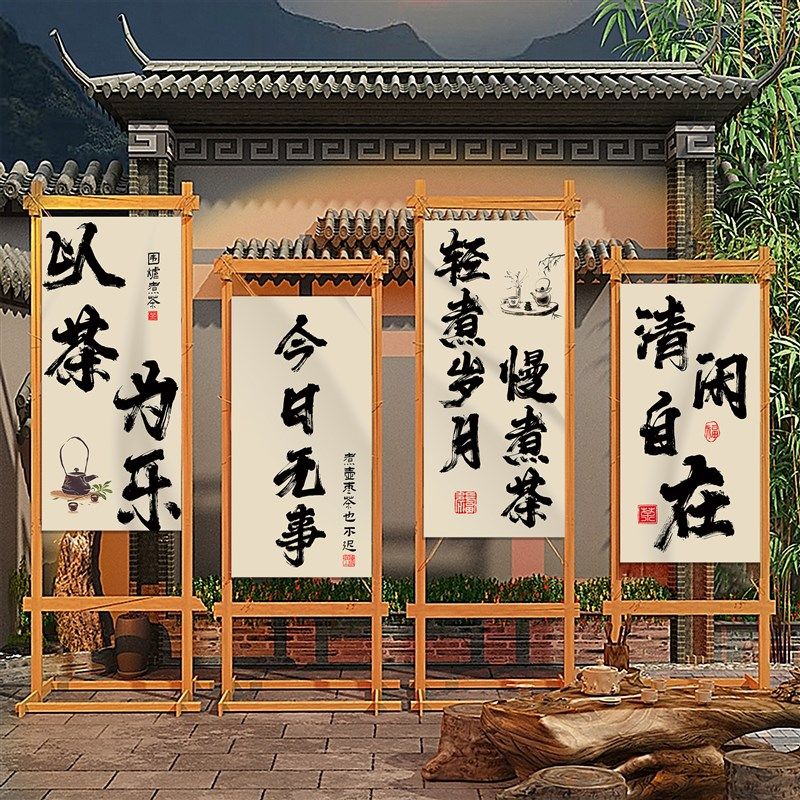 以茶
为乐
围炉煮茶
今日无事
煮壶枣茶也不迟
轻煮岁月
慢煮茶
清闲
自在
福
茶